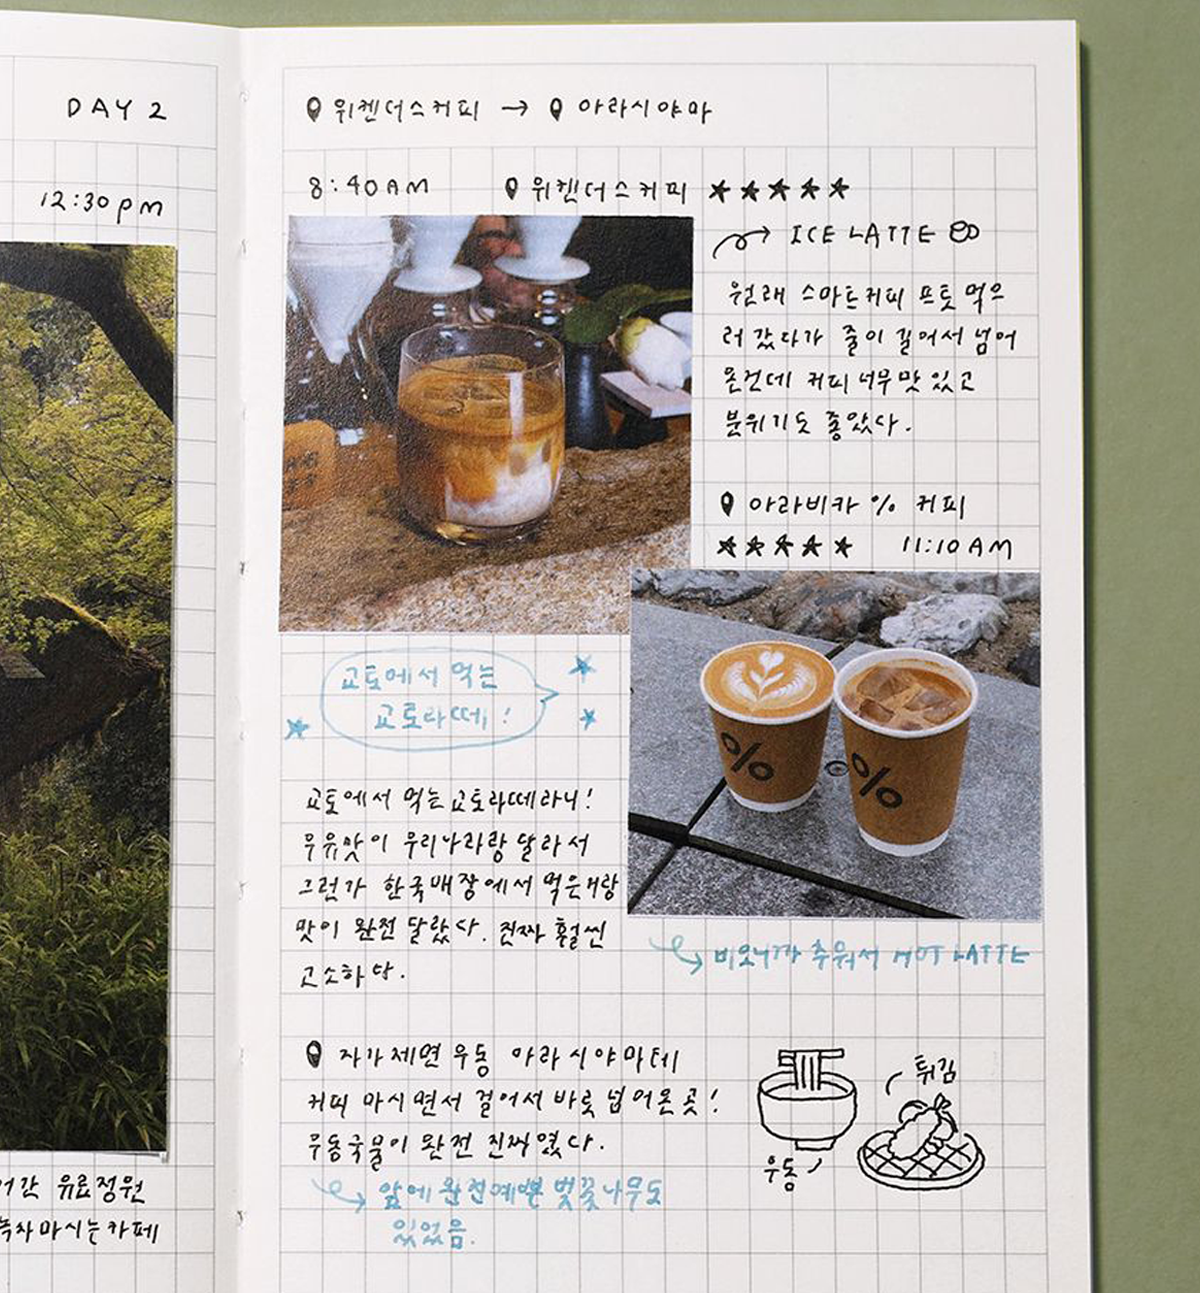 DAY 2
12:30pm
어간 유료정원
녹차마시는카페
위켄더스커피 → 아라시야마
8:40AM 위켄더스커피 ★★★★★
ICE LATTE
원래 스마트커피 프토 먹으
러 갔다가 줄이 길어서 넘어
온건데 커피너무맛있고
분위기도 좋았다.
아라비카 % 커피
★★★★★ 11:10AM
% %
교토에서 먹는
교토라떼!
비오니까 추워서 HOT LATTE
교토에서 먹는교토라떼라니!
우유맛이 우리나라랑 달라서
그런가 한국매장에서 먹은거랑
맛이 완전 달랐다. 진짜 훨씬
고소하다.
자가제면우동 아라시야마테
커피 마시면서 걸어서 바로 넘어온곳!
우동국물이 완전 진짜였다.
앞에 완전예쁜 벚꽃나무도
있었음.
튀김
우동